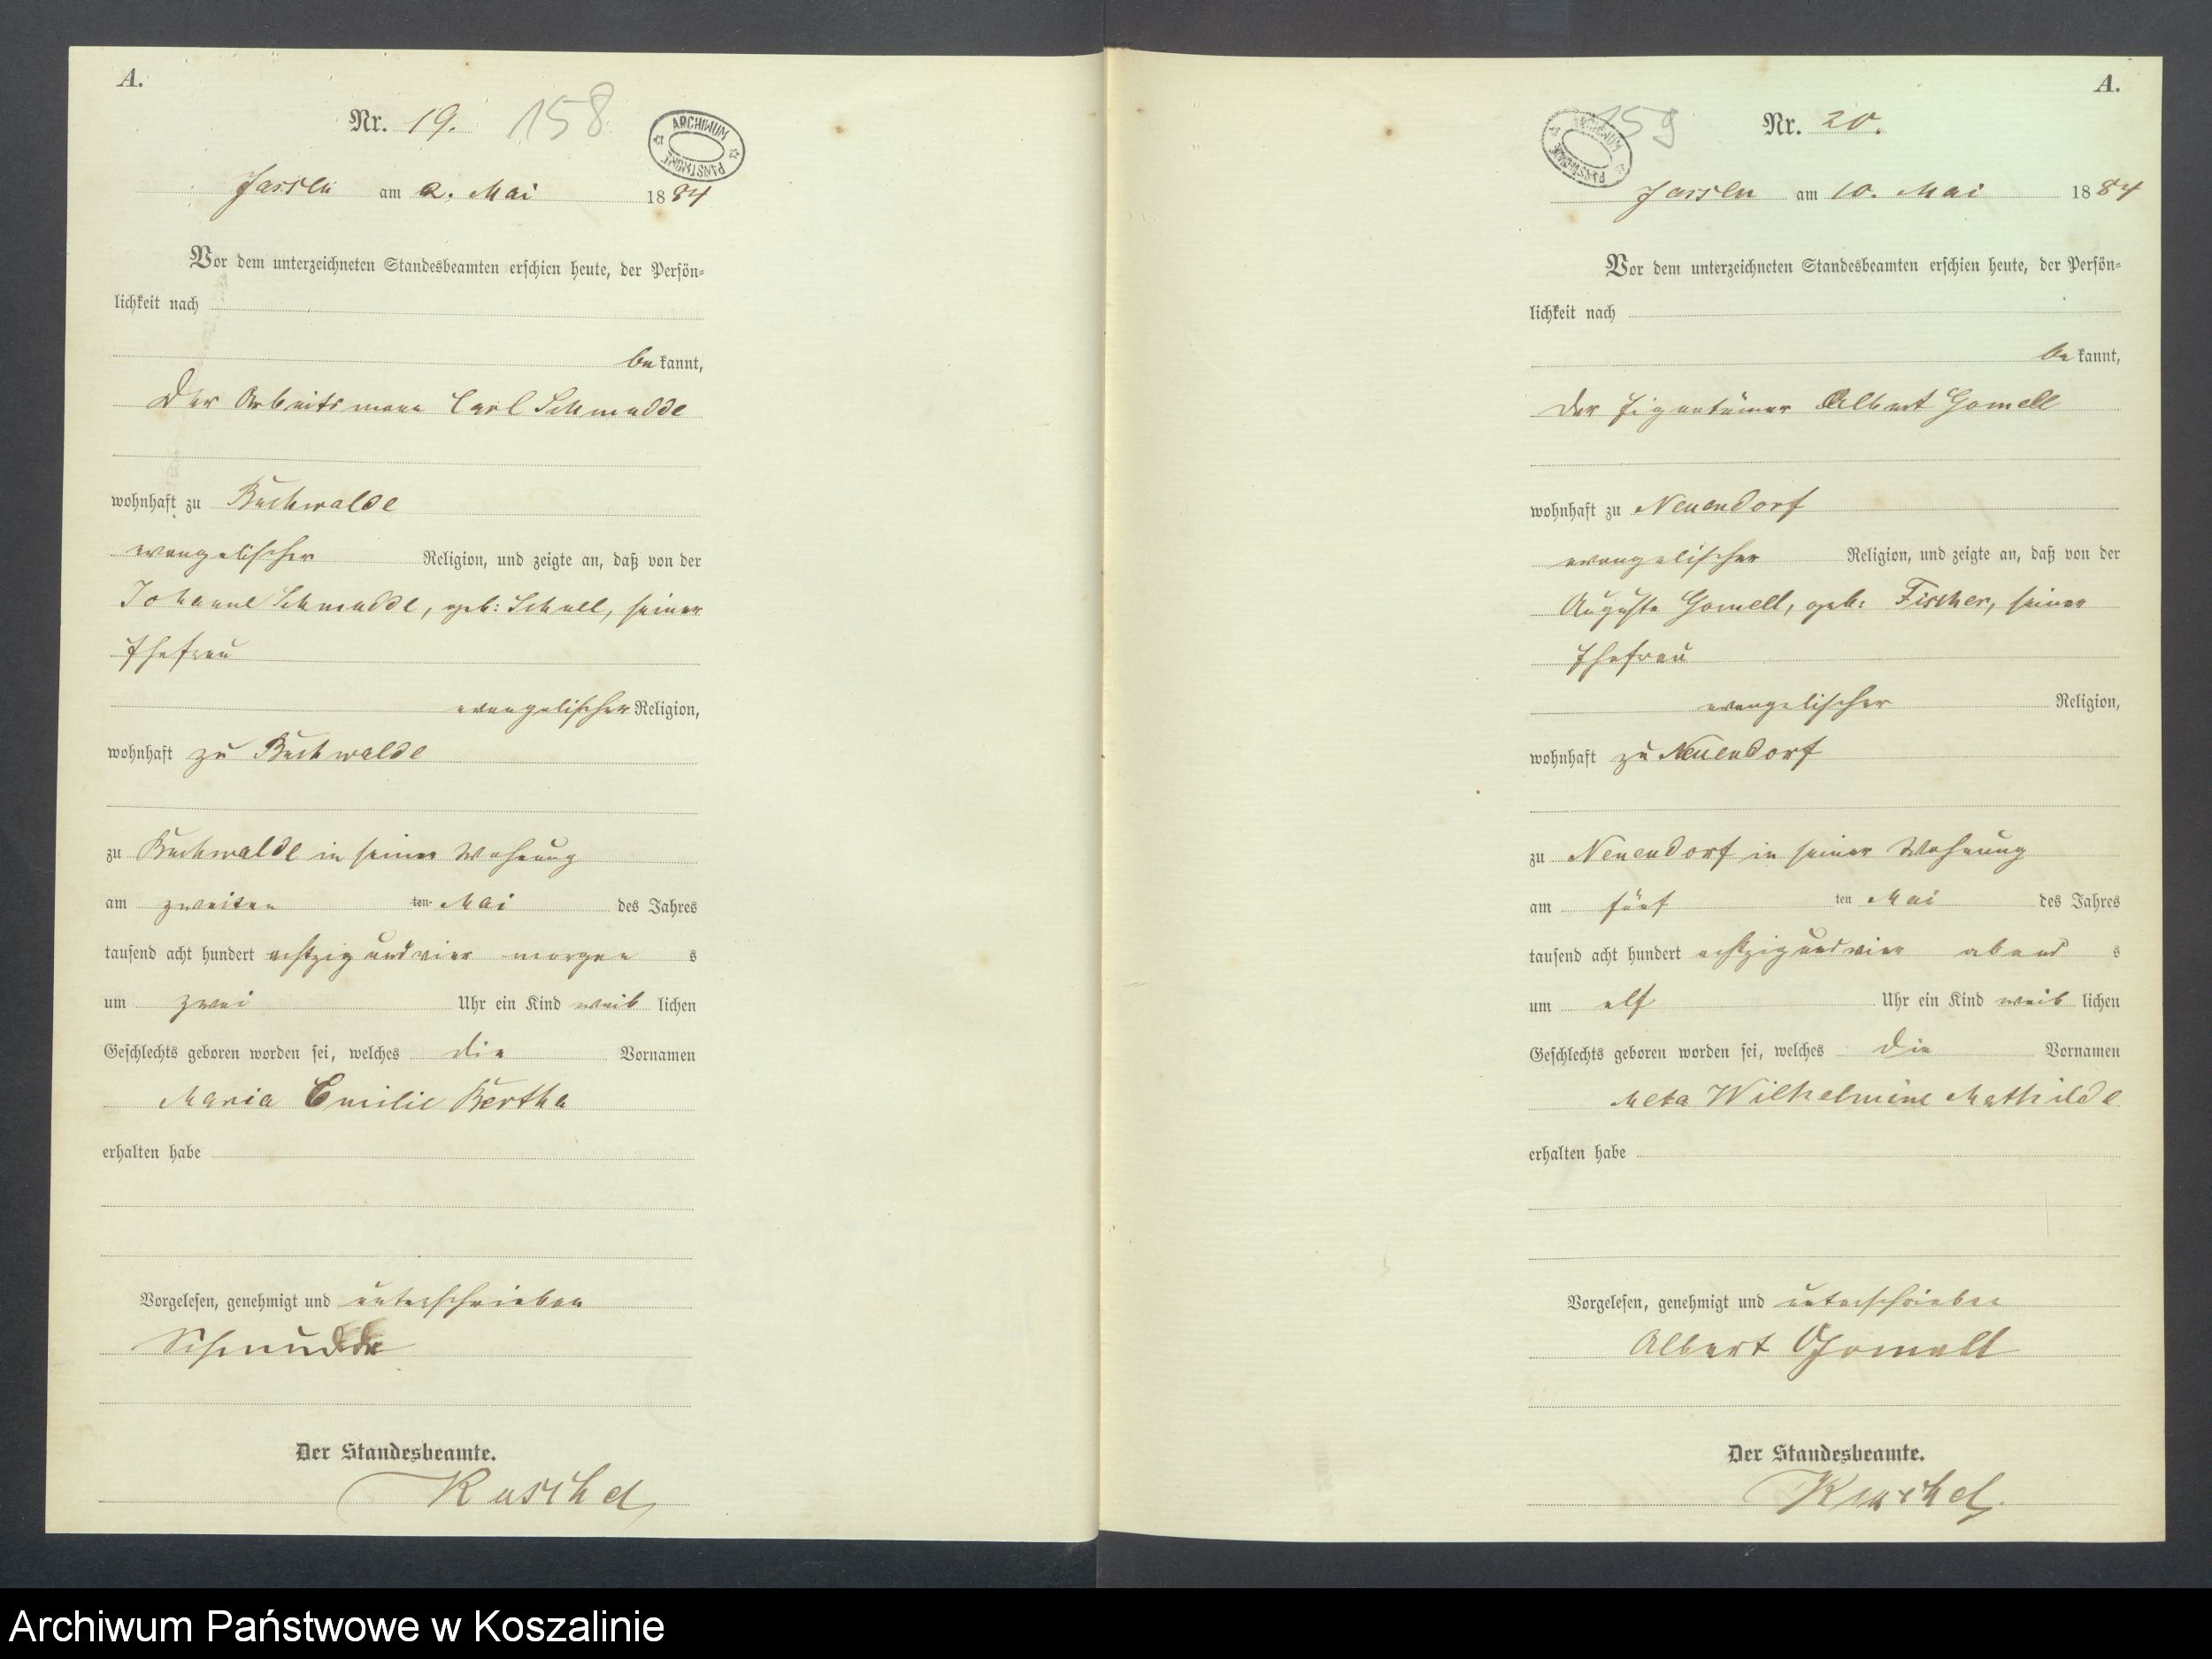 A.
Nr. 19. 158
ARCHIWUM PAŃSTWOWE
Jassen am 2. Mai 1884
Vor dem unterzeichneten Standesbeamten erschien heute, der Persön-
lichkeit nach
bekannt,
der Arbeitsmann Carl Schmudde
wohnhaft zu Buchwalde
evangelischer Religion, und zeigte an, daß von der
Johanne Schmudde, geb: Schnell, seiner
Ehefrau
evangelischer Religion,
wohnhaft zu Buchwalde
zu Buchwalde in seiner Wohnung
am zweiten ten Mai des Jahres
tausend acht hundert achtzig und vier morgens
um zwei Uhr ein Kind weiblichen
Geschlechts geboren worden sei, welches die Vornamen
Maria Emilie Bertha
erhalten habe
Vorgelesen, genehmigt und unterschrieben
Schmudde
Der Standesbeamte.
Kuschel
A.
159 Nr. 20.
ARCHIWUM PAŃSTWOWE
Jassen am 10. Mai 1884
Vor dem unterzeichneten Standesbeamten erschien heute, der Persön-
lichkeit nach
bekannt,
der Eigentümer Albert Gomell
wohnhaft zu Neuendorf
evangelischer Religion, und zeigte an, daß von der
Auguste Gomell, geb: Fischer, seiner
Ehefrau
evangelischer Religion,
wohnhaft zu Neuendorf
zu Neuendorf in seiner Wohnung
am fünf ten Mai des Jahres
tausend acht hundert achtzig und vier abends
um elf Uhr ein Kind weiblichen
Geschlechts geboren worden sei, welches die Vornamen
Meta Wilhelmine Mathilde
erhalten habe
Vorgelesen, genehmigt und unterschrieben
Albert Gomell
Der Standesbeamte.
Kuschel.
Archiwum Państwowe w Koszalinie